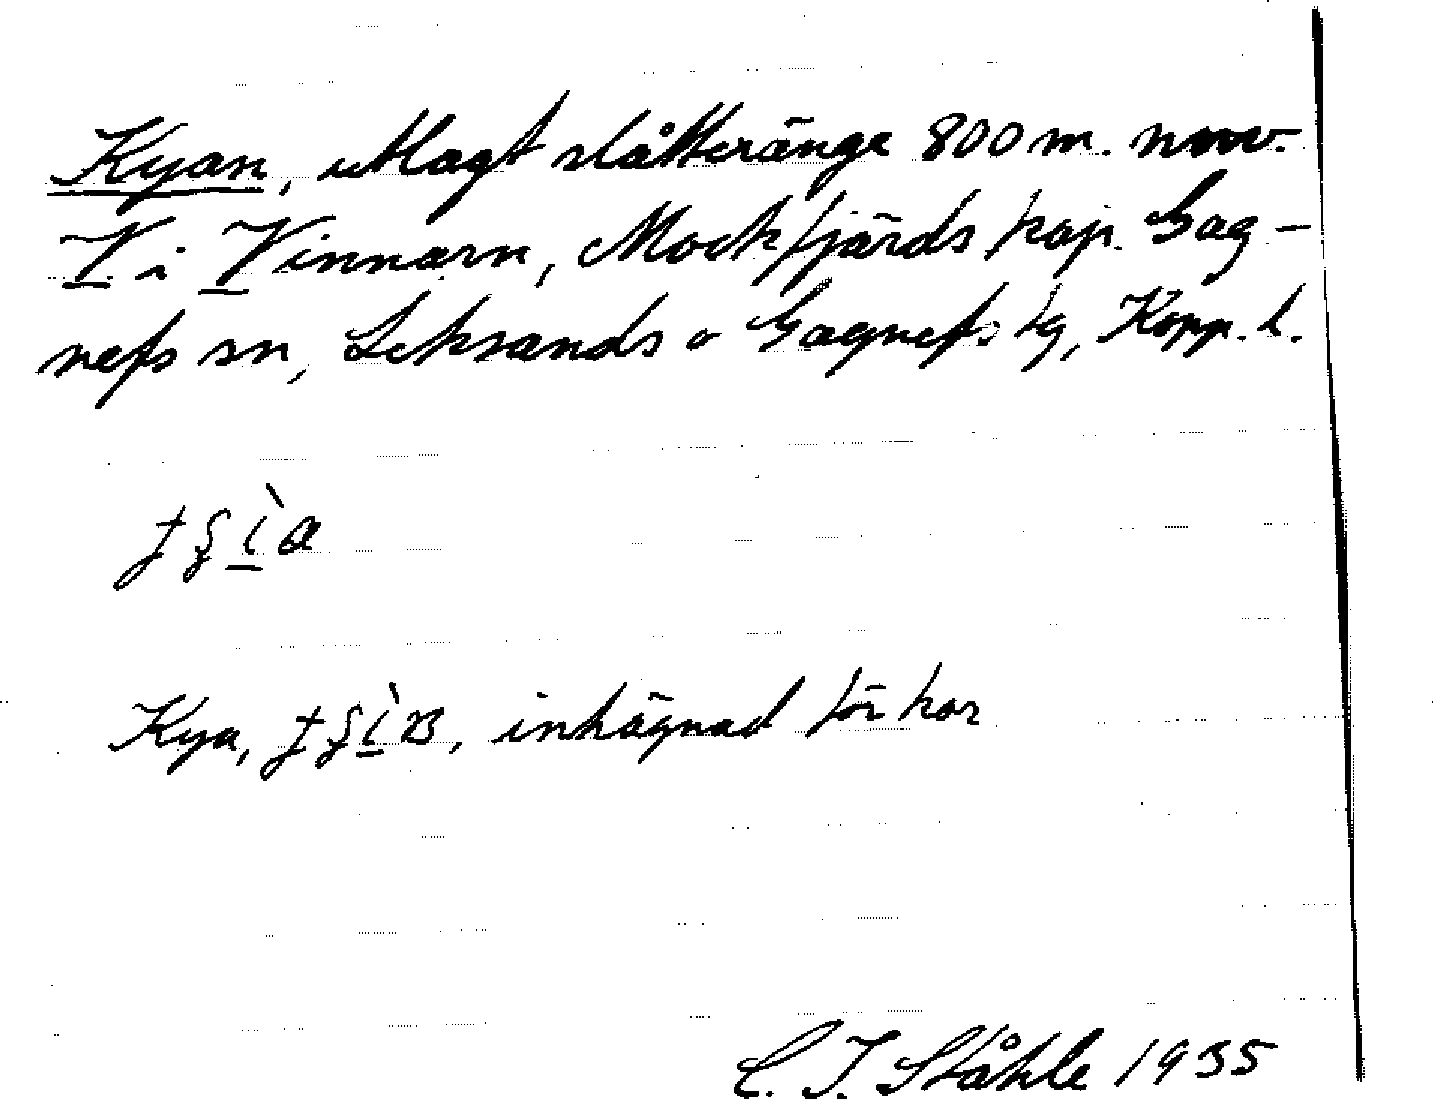 Kyan, utlagt slåtteränge 800 m. nnv.
V i Vinnarn, Mockfjärds kap. Gag-
nefs sn, Leksands o Gagnefs tg, Kopp. l.
Kya, inhägnad för kor
C. I. Ståhle 1935